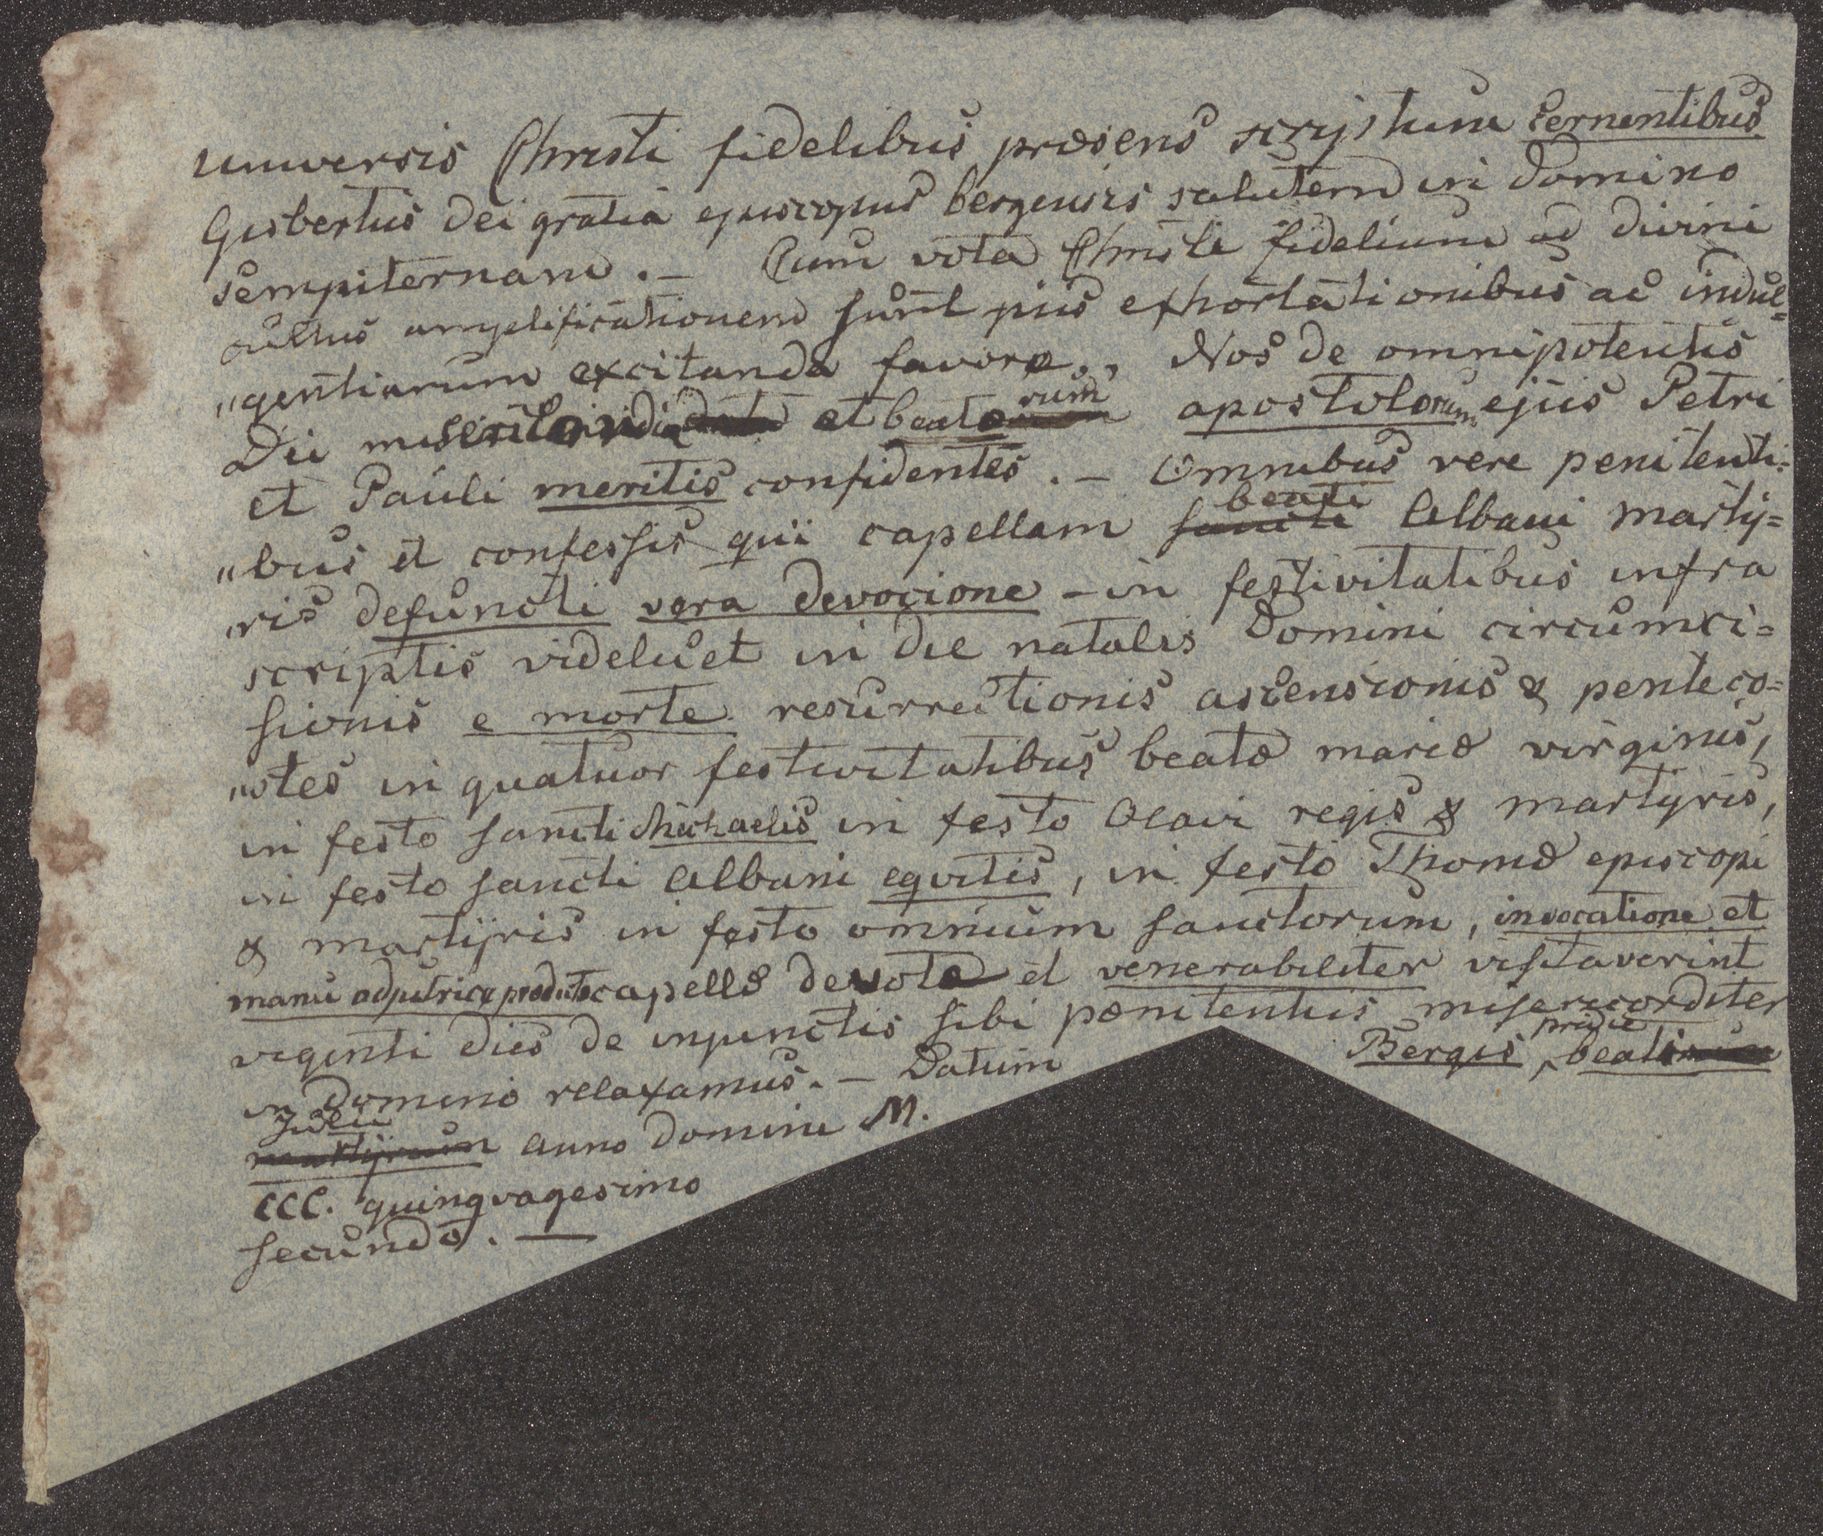 universis Christi fidelibus præsens scriptum cernentibus
Gisbertus dei gratia episcopus bergensis salutem in domino
sempiternam. – Cum vota Christi fidelium ad divini
cultus amplificationem sunt piis exhortationibus ac indul=
"gentiarum excitanda favore., Nos de omnipotentis
Dei misericordia et beatorum apostolorum ejus Petri
et Pauli meritis confidentes. – Omnibus vere penitenti=
"bus et confessis qui capellam sancti beati Albani marty=
"ris defuncti vera devocione – in festivitatibus infra
scriptis videlicet in die natalis Domini circumci=
sionis e morte resurrectionis ascensionis & penteco=
"stes in quatuor festivitatibus beatæ mariæ virginis,
in festo sancti Michaelis in festo Olavi regis & martyris,
in festo sancti Albani equitis, in festo Thomæ episcopi
& martyris in festo omnium sanctorum, invocatione et
manu adjutrice capellæ devote et venerabiliter visitaverint
viginti dies de injunctis sibi poenitentiis misericorditer
in domino relaxamus. – Datum Bergis pridie beatorum
Julii martyrum anno domini M.
CCC. quinqvagesimo
secundo. —